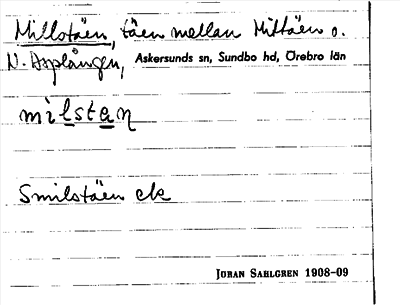 Millotäen, täen mellan Hittäen o.
N. Asplången, Askersunds sn, Sundbo hd, Örebro län
milstan
Smilotäen ek
JOHAN SAHLGREN 1908–09